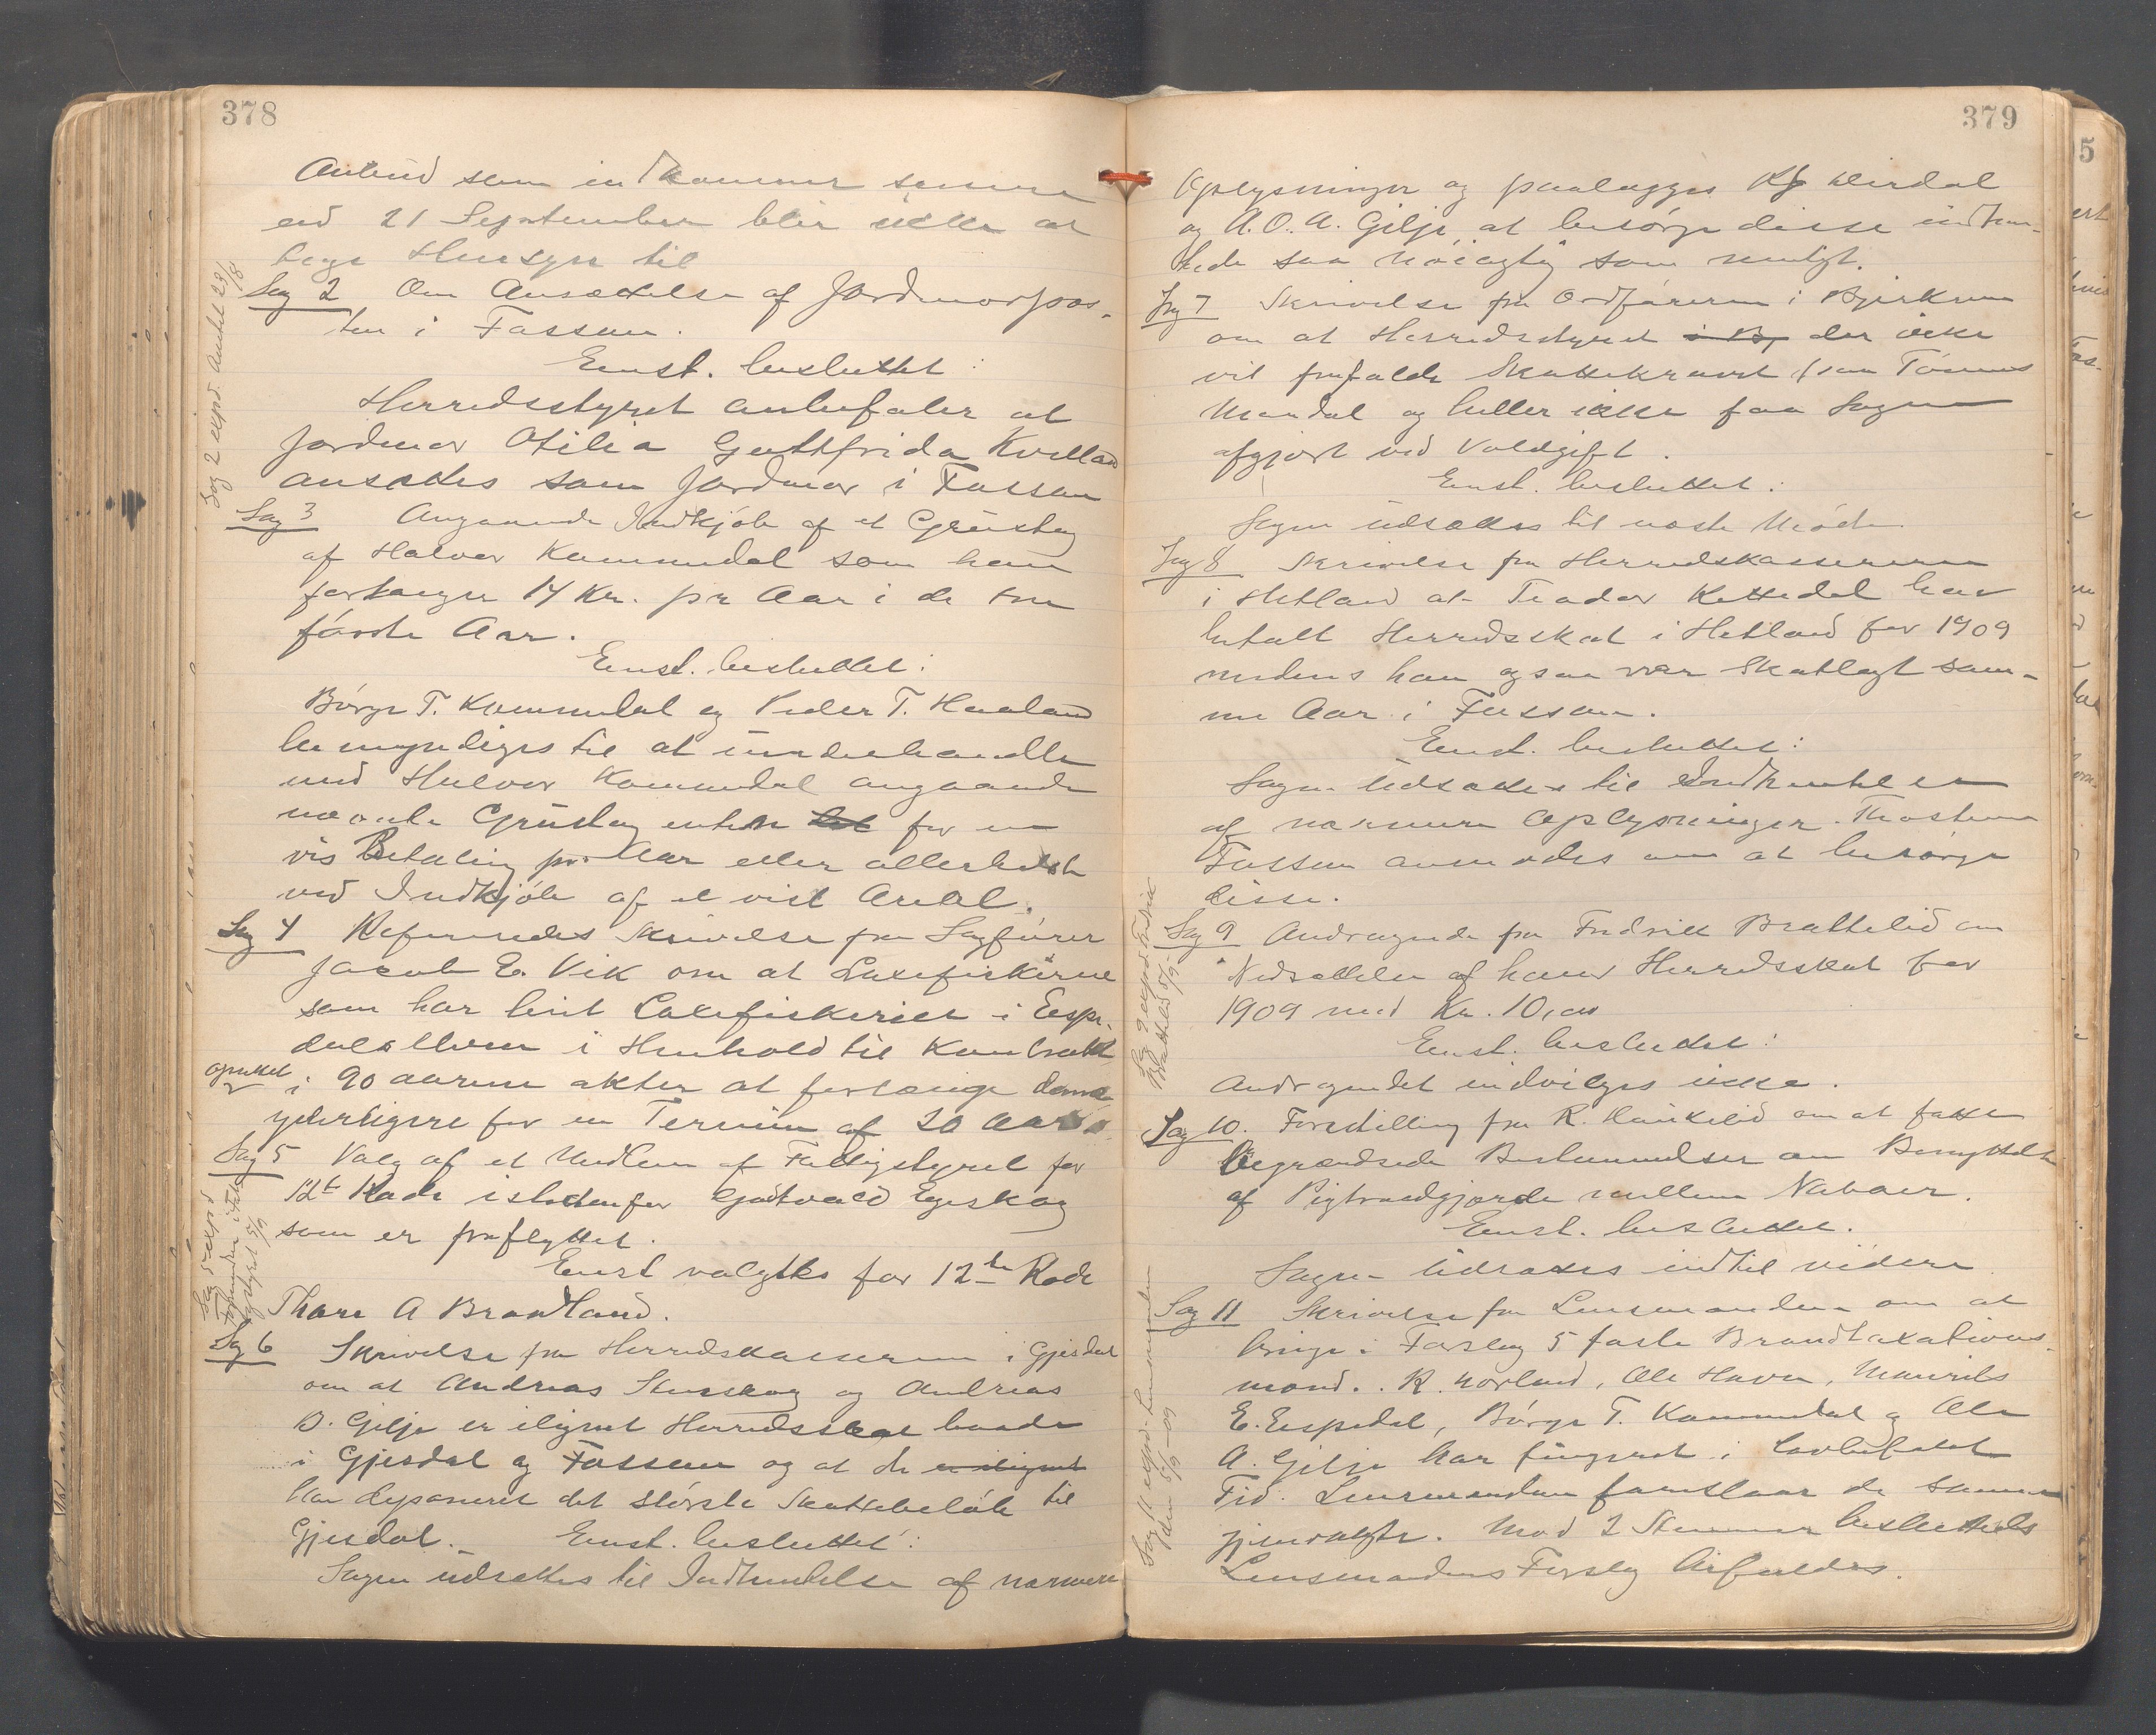 378
Anbud som indkommer senere
end 21 September blir ikke at
tage Hensyn til
Sag 2 Om Ansættelse af Jordmorpos-
ten i Fossan.
Enst. besluttet:
Herredsstyret anbefaler at
Jordmor Otilia Guttfrida Kvelland
ansættes som Jordmor i Fossan
Sag 3 Angaaende Indkjöb af et Grustag
af Halvor Kommedal som han
forlanger 14 Kr. pr Aar i de tre
förste Aar.
Enst. besluttet:
Börge T. Kommedal og Peder T. Haaland
bemyndiges til at underhandle
med Halvor Kommedal angaaende
nævnte Grustag enten for en
vis Betaling pr. Aar eller allerhelst
ved Indkjöb af et vist Areal.
Sag 4 Refereredes Skrivelse fra Sagförer
Jacob E. Vik om at Laxefiskerne
som har leiet Laxefiskeriet i Espe-
dalselven i Henhold til Kontrakt
opsettet
i 90 aarene akter at forlænge denne
yderligere for en Termin af 20 Aar.
Sag 5 Valg af et Medlem af Fattigstyret for
12te Rode istedenfor Gotvald Egeskog
som er fraflyttet.
Enst valgtes for 12te Rode
Thore A Brandland.
Sag 6 Skrivelse fra Herredskassereren i Gjesdal
om at Andreas Stenskog og Andreas
O. Gilje er ilignet Herredsskat baade
i Gjesdal og Fossan og at de er ilignet
har deponeret det störste Skattebelöb til
Gjesdal. Enst. besluttet:
Sagen udsættes til Indhentelse af nærmere
Sag 2 expd. Amtet 23/8
Sag 5 expd
Formanden i Fattigstyret 5/9
379
Oplysninger og paalægges
og A.O.A. Gilje at besörge disse indhen-
tede saa nöiagtig som muligt.
Sag 7 Skrivelse fra Ordföreren i Bjerkreim
om at Herredsstyret i Bj der ikke
vil frafalde Skattekravet Tönnes
Mandal og heller ikke faa Sagen
afgjort ved Voldgift.
Enst. besluttet:
Sagen udsættes til næste Möde.
Sag 8 Skrivelse fra Herredskassereren
i Hetland at Teodor Kettedal har
betalt Herredsskat i Hetland for 1909
medens han ogsaa var Skatlagt sam-
me Aar i Fossan.
Enst. besluttet:
Sagen udsættes til Indhentelse
af nærmere Oplysninger. Thostein
Fossan anmodes om at besörge
disse.
Sag 9 Andragende fra Fredrik Brattelid om
Nedsættelse af hans Herredsskat for
1909 med Kr. 10,00
Enst. besluttet:
Andragendet indvilges ikke.
Sag 10. Forestilling fra R. Haukelid om at fatte
begrændsede Bestemmelser om Benyttelse
af Pigtraadgjærde mellem Naboer.
Enst. besluttet.
Sagen udsættes indtil videre.
Sag 11 Skrivelse fra Lensmanden om at
bringe i Forslag 5 faste Brandtaxations-
mænd. R. Norland, Ole Haven, Maurits
E. Espedal, Börge T. Kommedal og Ole
A. Gilje har fungeret i Lovbefalet
Tid. Lensmanden foreslaar de samme
gjenvalgte. Mod 2 Stemmer besluttedes
Lensmandens Forslag bifaldes.
Sag 9 expd. Fredrik
Brattelid 5/9-
Sag 11 expd. Lensmanden
den 5/9-09